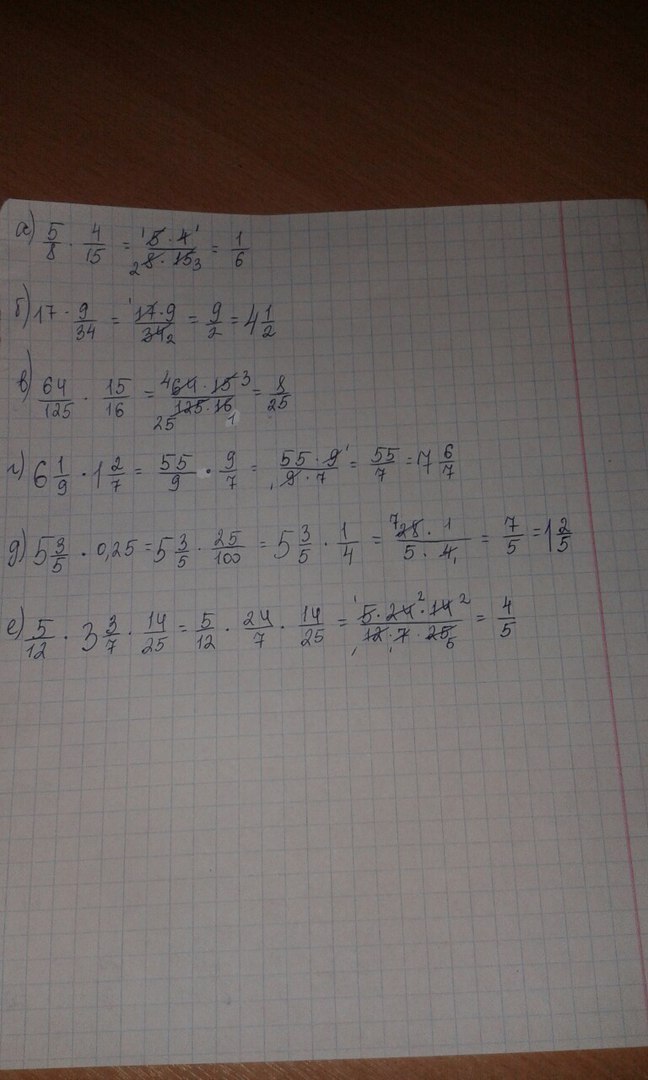 а) 5/8 · 4/15 = 5·4/8·15 = 1/6
б) 17 · 9/34 = 17·9/34 = 9/2 = 4 1/2
в) 64/125 · 15/16 = 64·15/125·16 = 8/25
г) 6 1/9 · 1 2/7 = 55/9 · 9/7 = 55·9/9·7 = 55/7 = 7 6/7
д) 5 3/5 · 0,25 = 5 3/5 · 25/100 = 5 3/5 · 1/4 = 28·1/5·4 = 7/5 = 1 2/5
е) 5/12 · 3 3/7 · 14/25 = 5/12 · 24/7 · 14/25 = 5·24·14/12·7·25 = 4/5